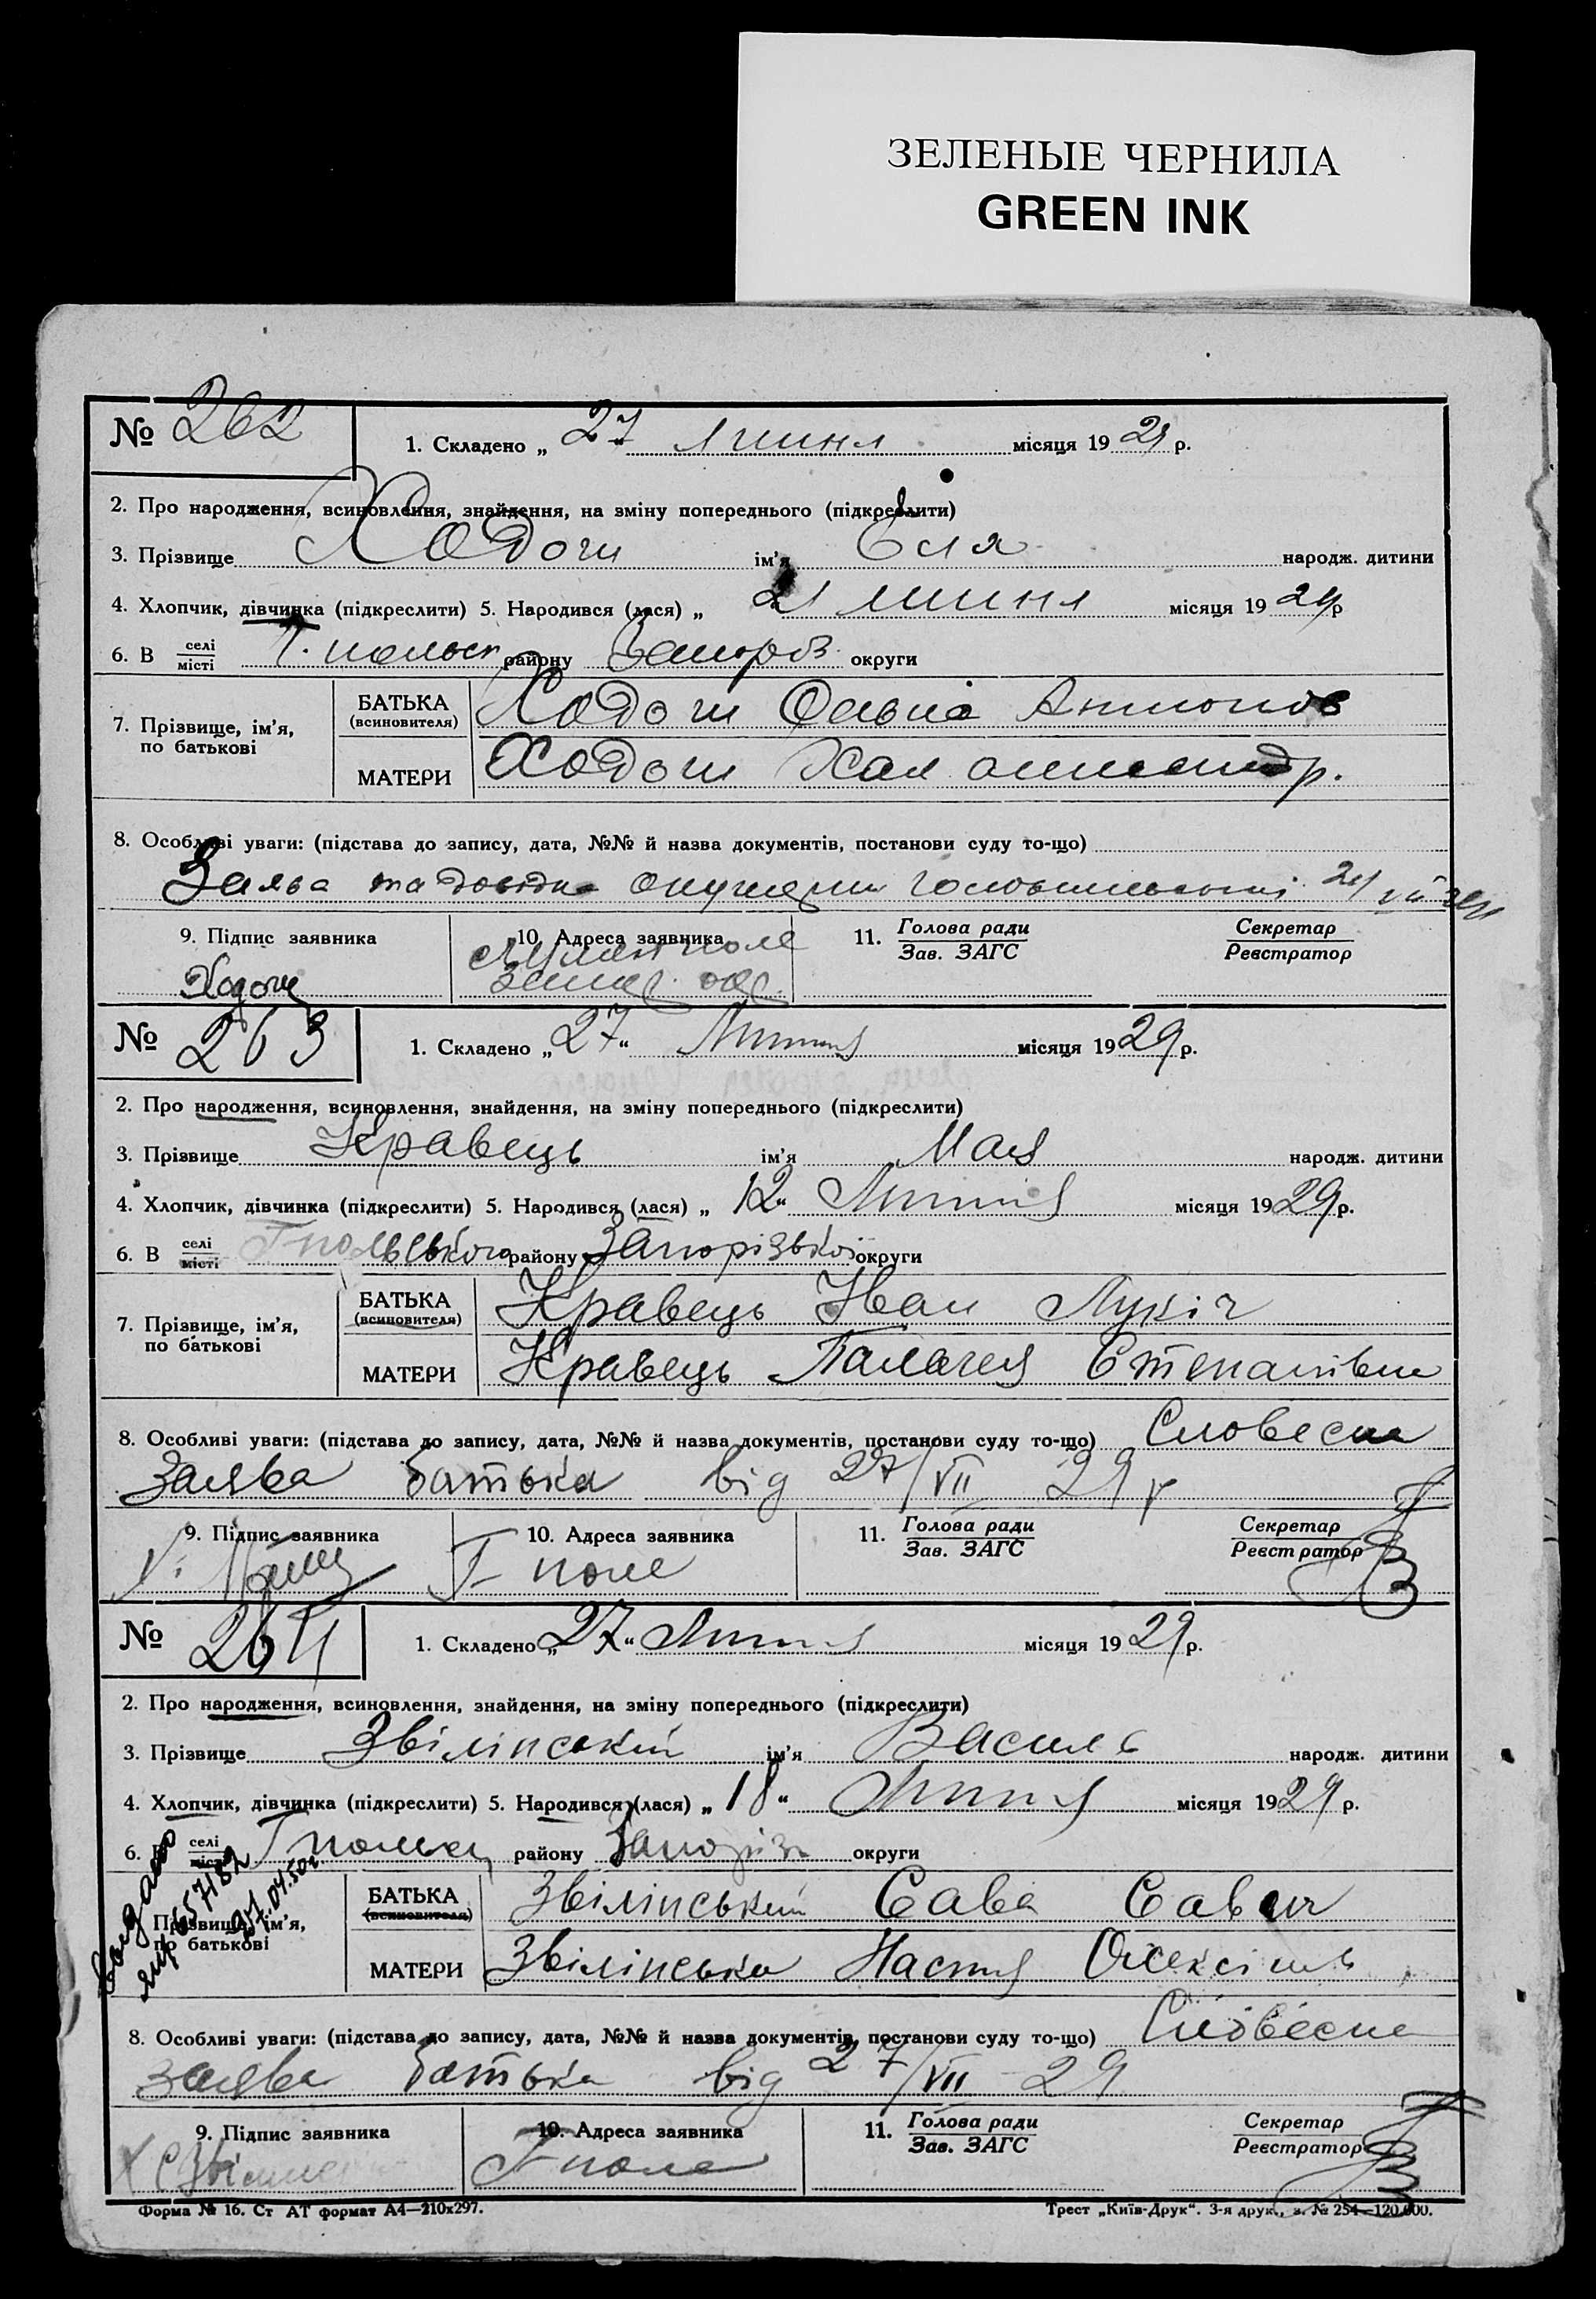 ЗЕЛЕНЫЕ ЧЕРНИЛА
GREEN INK
№ 262 1. Складено „ 27 “ липня місяця 19 29 р.
2. Про народження, всиновлення, знайдення, на зміну попереднього (підкреслити)
3. Прізвище ім'я народж. дитини
4. Хлопчик, дівчинка (підкреслити) 5. Народився (лася) „ 21 липня місяця 19 29 р
6. В селі/місті Г. польськ району Запоріз округи
7. Прізвище, ім'я, по батькові
БАТЬКА (всиновителя) Антонов
МАТЕРИ
8. Особливі уваги: (підстава до запису, дата, №№ й назва документів, постанови суду то-що)
Заява та довідка
9. Підпис заявника 10. Адреса заявника 11. Голова ради/Зав. ЗАГС Секретар/Реєстратор
поле
№ 263 1. Складено „ 27 “ Липня місяця 19 29 р.
2. Про народження, всиновлення, знайдення, на зміну попереднього (підкреслити)
3. Прізвище Кравець ім'я Мая народж. дитини
4. Хлопчик, дівчинка (підкреслити) 5. Народився (лася) „ 12 “ Липня місяця 19 29 р.
6. В селі/місті Гпольського району Запорізької округи
7. Прізвище, ім'я, по батькові
БАТЬКА (всиновителя) Кравець Иван Лукіч
МАТЕРИ Кравець Палагея Степанівна
8. Особливі уваги: (підстава до запису, дата, №№ й назва документів, постанови суду то-що) Словесна
Заява батька від 27/VII 29 р
9. Підпис заявника 10. Адреса заявника 11. Голова ради/Зав. ЗАГС Секретар/Реєстратор
Г-поле
№ 264 1. Складено „ 27 “ Липня місяця 19 29 р.
2. Про народження, всиновлення, знайдення, на зміну попереднього (підкреслити)
3. Прізвище Звілінський ім'я Василь народж. дитини
4. Хлопчик, дівчинка (підкреслити) 5. Народився (лася) „ 18 “ Липня місяця 19 29 р.
6. В селі/місті району Запоріз округи
7. Прізвище, ім'я, по батькові
БАТЬКА (всиновителя) Звілінський Сава Савич
МАТЕРИ Звілінська Настя
8. Особливі уваги: (підстава до запису, дата, №№ й назва документів, постанови суду то-що) Словесна
заява батька від 27/VII 29
9. Підпис заявника 10. Адреса заявника 11. Голова ради/Зав. ЗАГС Секретар/Реєстратор
Г-поле
Форма № 16. Ст АТ формат А4—210х297. Трест „Київ-Друк“. 3-я друк., з. № 254—120.000.